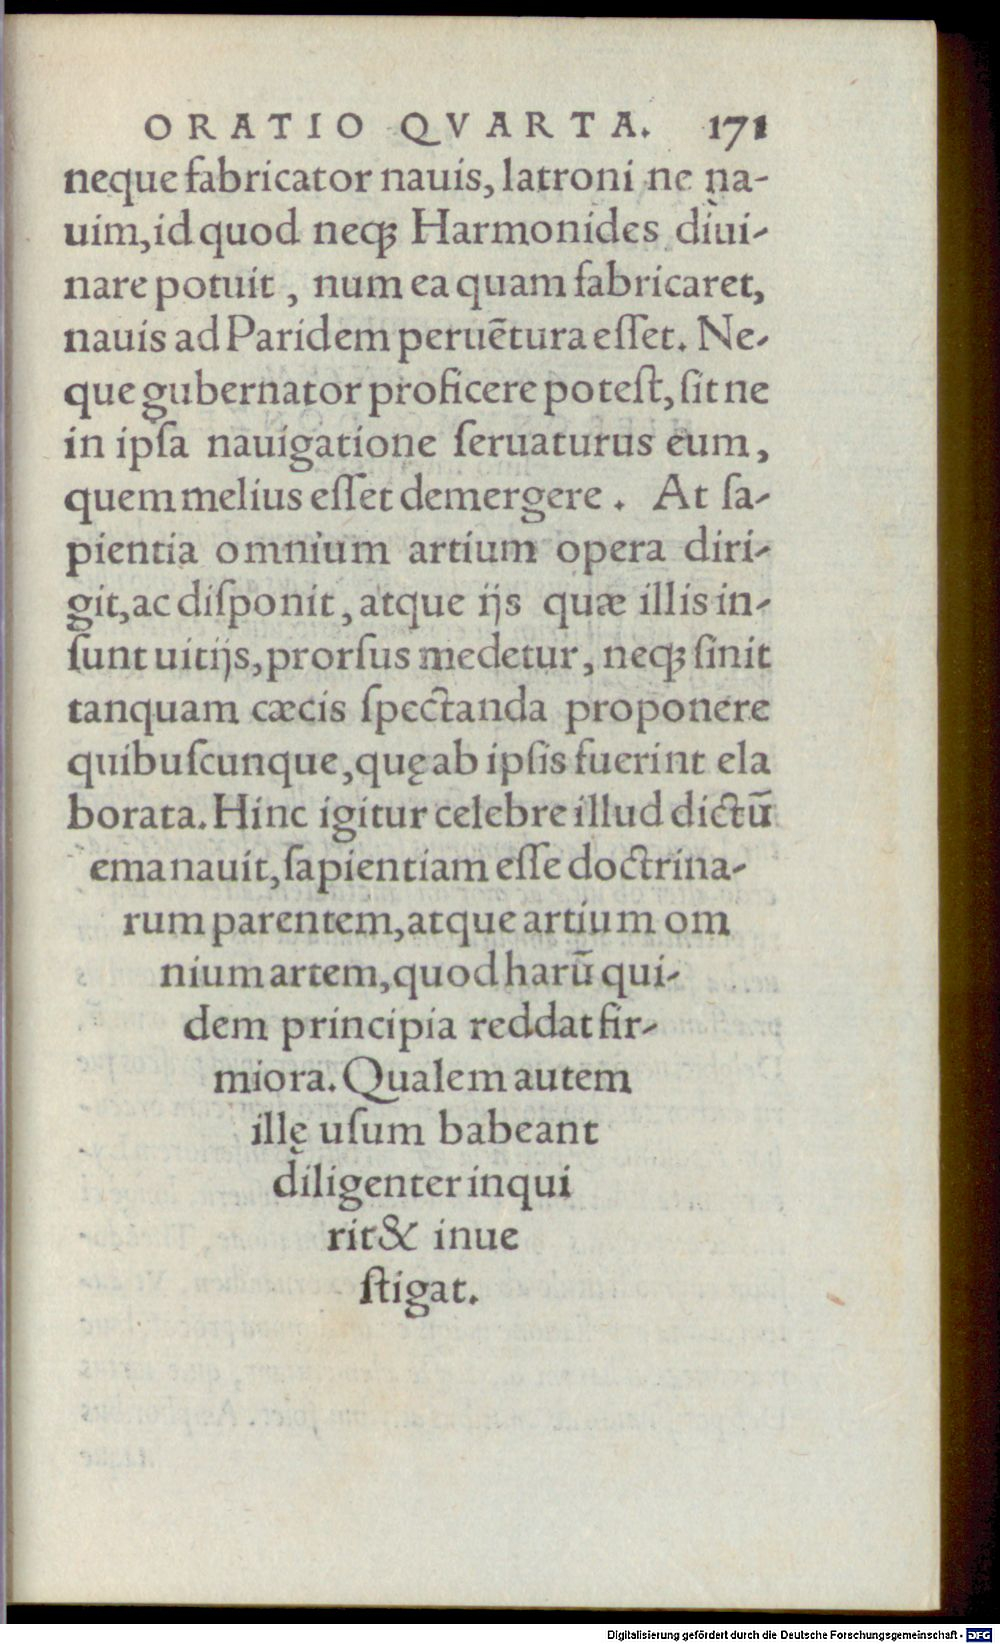 ORATIO QVARTA. 171
neque fabricator nauis, latroni ne na-
uim, id quod neqꝫ Harmonides diui-
nare potuit, num ea quam fabricaret,
nauis ad Paridem peruētura esſet. Ne-
que gubernator proficere poteſt, ſit ne
in ipſa nauigatione ſeruaturus eum,
quem melius eſſet demergere. At ſa-
pientia omnium artium opera diri-
git, ac diſponit, atque ijs quæ illis in-
ſunt uitijs, prorſus medetur, neqꝫ ſinit
tanquam cæcis ſpectanda proponere
quibuſcunque, quę ab ipſis fuerint ela
borata. Hinc igitur celebre illud dictū
emanauit, ſapientiam eſſe doctrina-
rum parentem, atque artium om
nium artem, quod harū qui-
dem principia reddat fir-
miora. Qualem autem
illę uſum babeant
diligenter inqui
rit & inue
ſtigat.
Digitalisierung gefördert durch die Deutsche Forschungsgemeinschaft - DFG